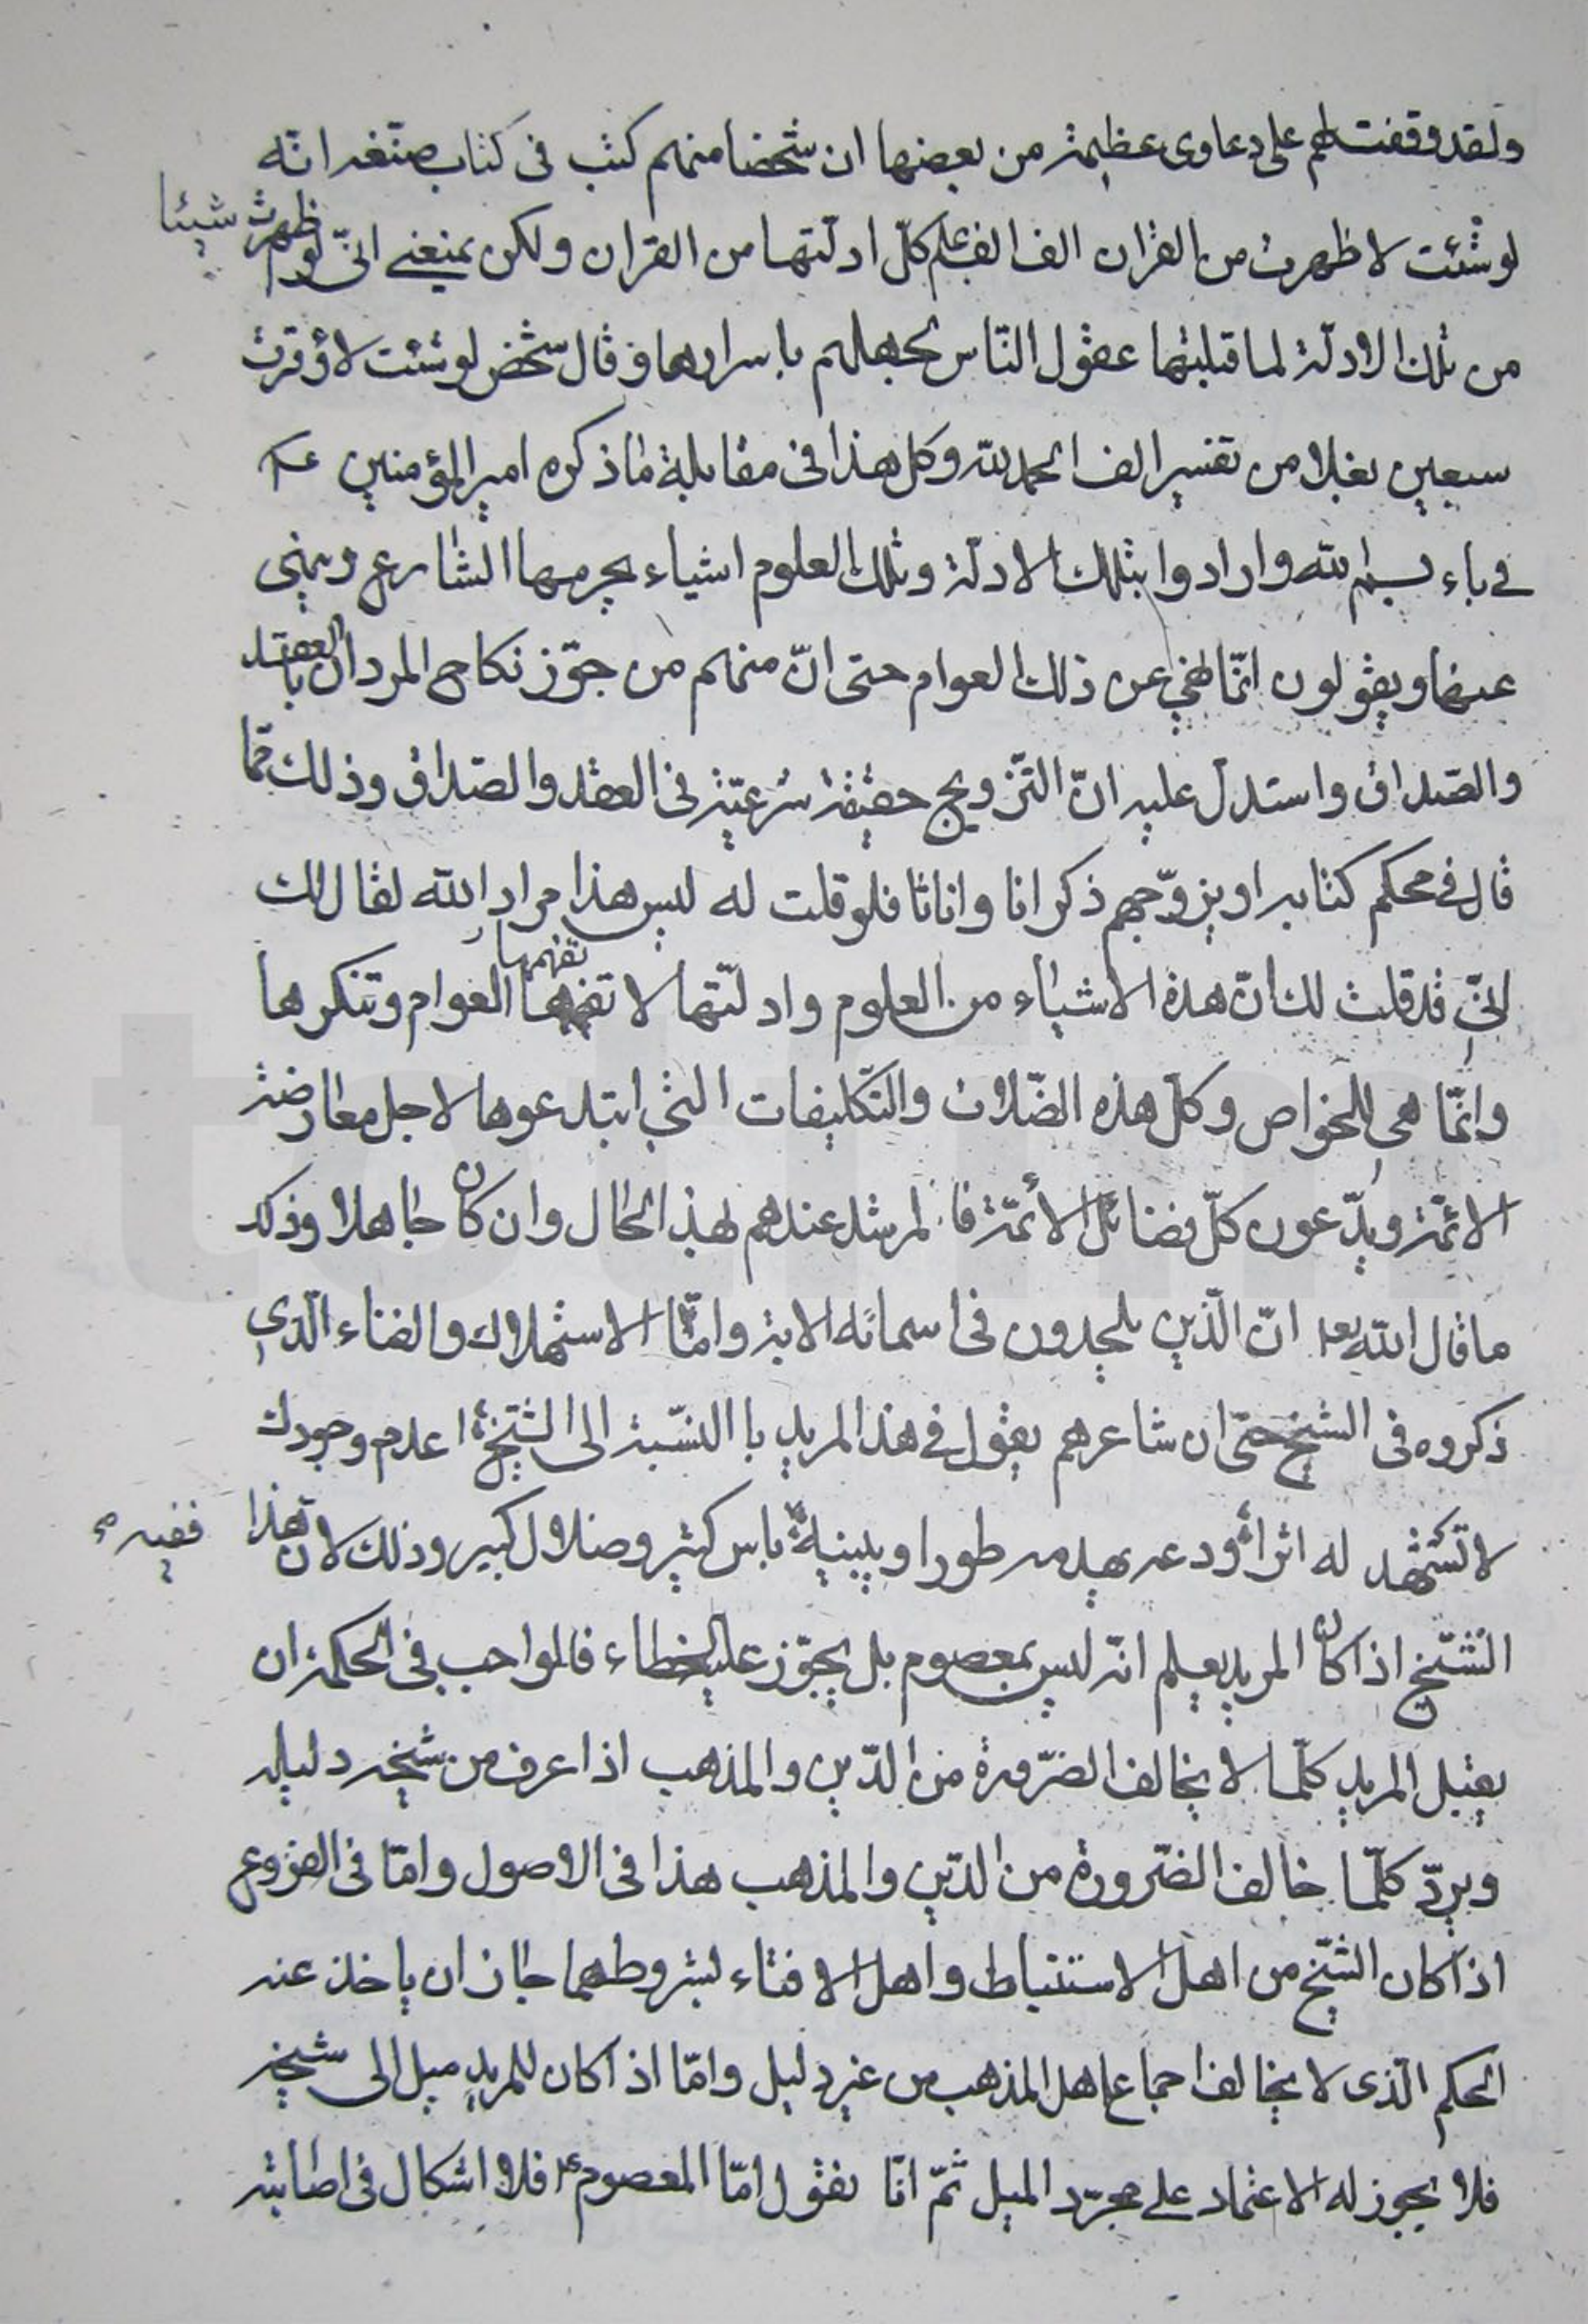 ولقد وقفت لهم على دعاوى عظيمة من بعضها ان شخصا منهم كتب فى كتاب صنّفه انّه
لو شئت لاظهرت من القران الف الف علم كلّ ادلّتها من القران ولكن يمنعنى انّى لو اظهرت شيئا
من تلك الادلّة لما قبلتها عقول النّاس لجهلهم باسرارها وقال شخص لو شئت لاوقرت
سبعين بغلا من تفسير الف الحمد لله وكل هذا فى مقابلة ما ذكره امير المؤمنين ع
فى باء بسم الله وارادوا بتلك الادلّة وتلك العلوم اشياء يحرمها الشارع وينهى
عنها ويقولون انّما نهى عن ذلك العوام حتى انّ منهم من جوّز نكاح المردان بالعقد
والصّداق واستدلّ عليه انّ التّزويج حقيقة شرعيّة فى العقد والصّداق وذلك ممّا
قال فى محكم كتابه او يزوّجهم ذكرانا واناثا فلو قلت له ليس هذا مراد الله لقال لك
انّى قد قلت لك انّ هذه الاشياء من العلوم وادلّتها لا تفهمها العوام وتنكرها
وانّما هى للخواص وكلّ هذه الضّلالات والتكليفات التى ابتدعوها لاجل معارضة
الائمّة ويدّعون كلّ فضائل الأئمّة فالمرشد عندهم لهذ الحال وان كان جاهلا وذكر
ما قال الله تع انّ الّذين يلحدون فى اسمائه الاية وامّا الاستهلاك والفناء الّذى
ذكروه فى الشيخ حتّى ان شاعرهم يقول فى هذ المريد با النسّبة الى الشّيخ اعدم وجودك
لا تشهد له اثرا ودعه يهدمه طورا ويبنيه باس كثير وضلال كبير وذلك لان هذا ففيه
الشّيخ اذا كان المريد يعلم انّه ليس بمعصوم بل يجوّز عليه الخطاء فالواجب فى الحكمة ان
يقبل المريد كلّما لا يخالف الضّرورة من الدّين والمذهب اذا عرف من شيخه دليله
ويردّ كلّما خالف الضّرورة من الدّين والمذهب هذا فى الاصول وامّا فى الفروع
اذا كان الشّيخ من اهل الاستنباط واهل الافتاء بشروطهما جاز ان ياخذ عنه
الحكم الّذى لا يخالف اجماع اهل المذهب من غير دليل وامّا اذا كان للمريد ميل الى شيخه
فلا يجوز له الاعتماد على مجرّد الميل ثمّ انّا نقول امّا المعصوم ع فلا اشكال فى اصابته